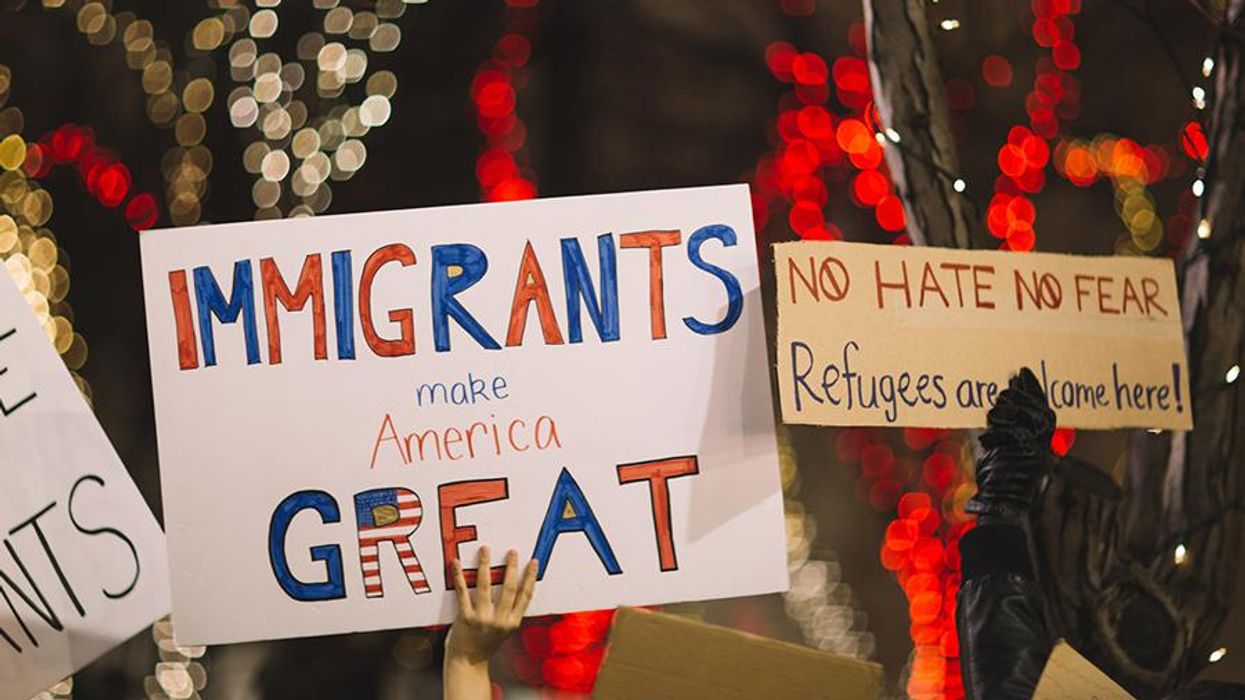 IMMIGRANTS
make
America
GREAT
NO HATE NO FEAR
Refugees are here!
ANTS